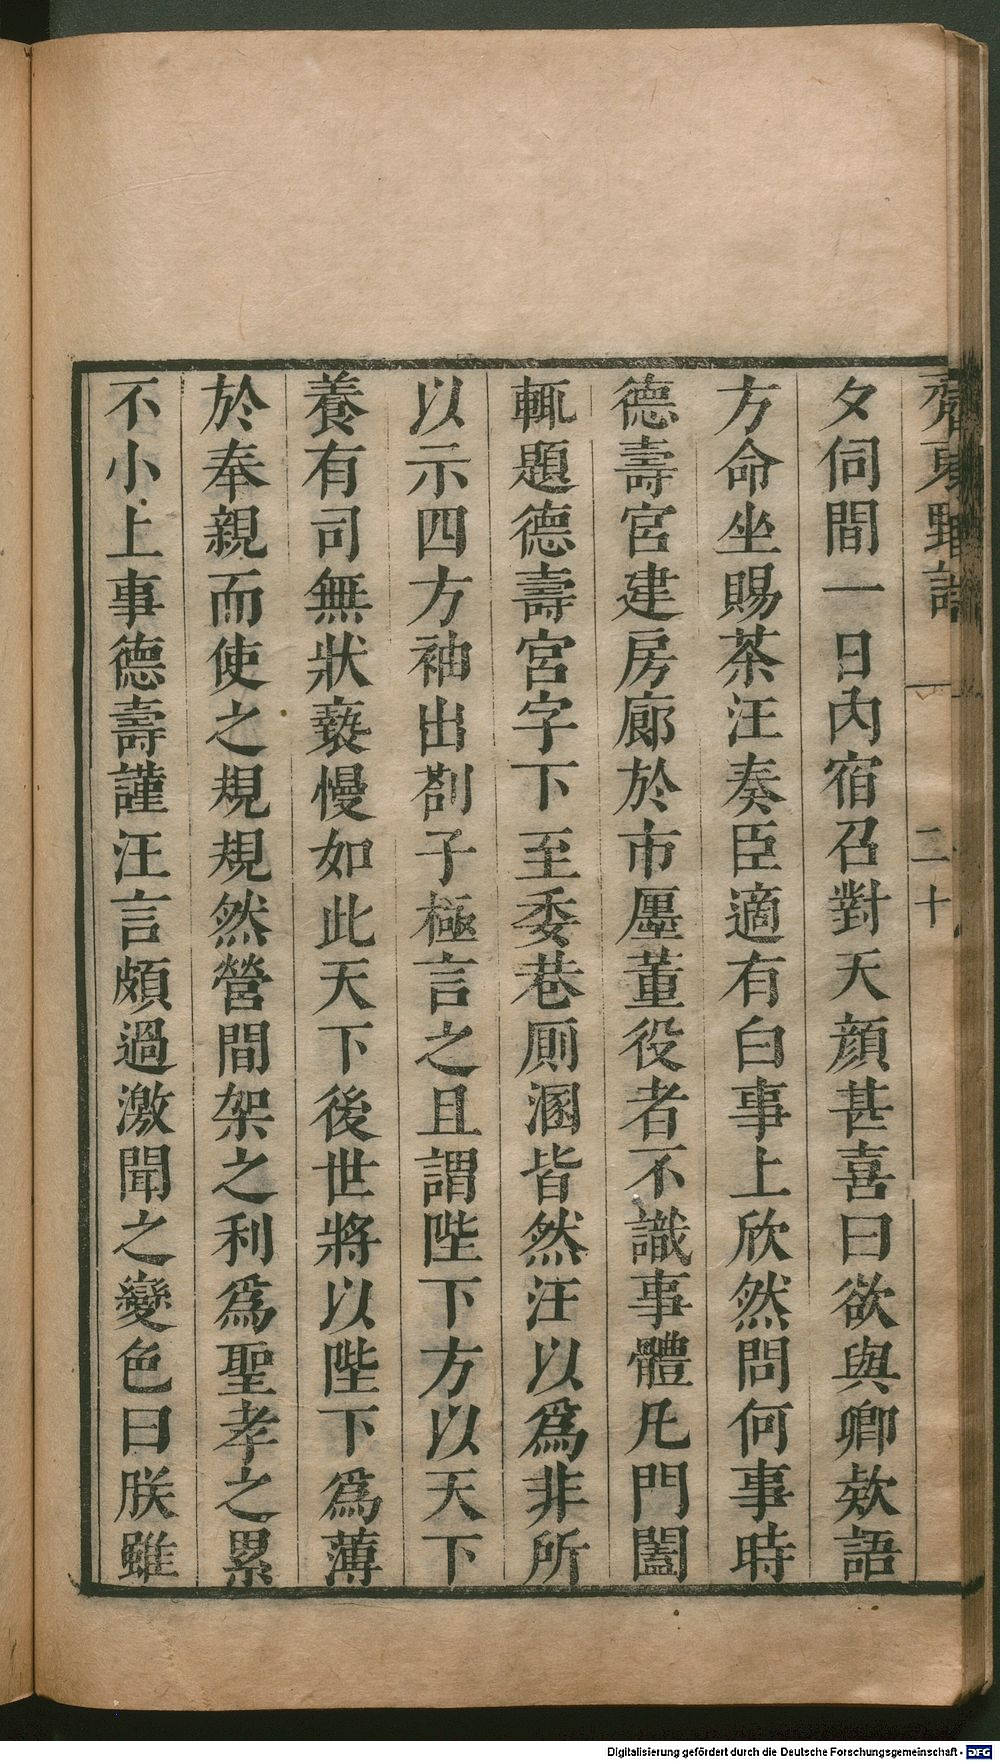 齊東野語
一
二十
夕伺間一日內宿召對天顔甚喜曰欲與卿欵語
方命坐賜茶汪奏臣適有白事上欣然問何事時
德壽宮建房廊於市廛董役者不識事體凡門闔
輒題德壽宮字下至委巷厠溷皆然汪以爲非所
以示四方袖出劄子極言之且謂陛下方以天下
養有司無狀褻慢如此天下後世將以陛下爲薄
於奉親而使之規規然營間架之利爲聖孝之累
不小上事德壽謹汪言頗過激聞之變色曰朕雖
Digitalisierung gefördert durch die Deutsche Forschungsgemeinschaft - DFG